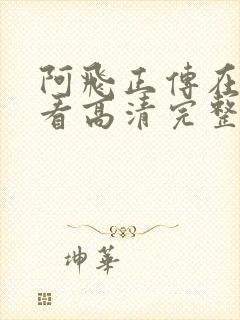 阿飛正傳在
看高清完整
坤華